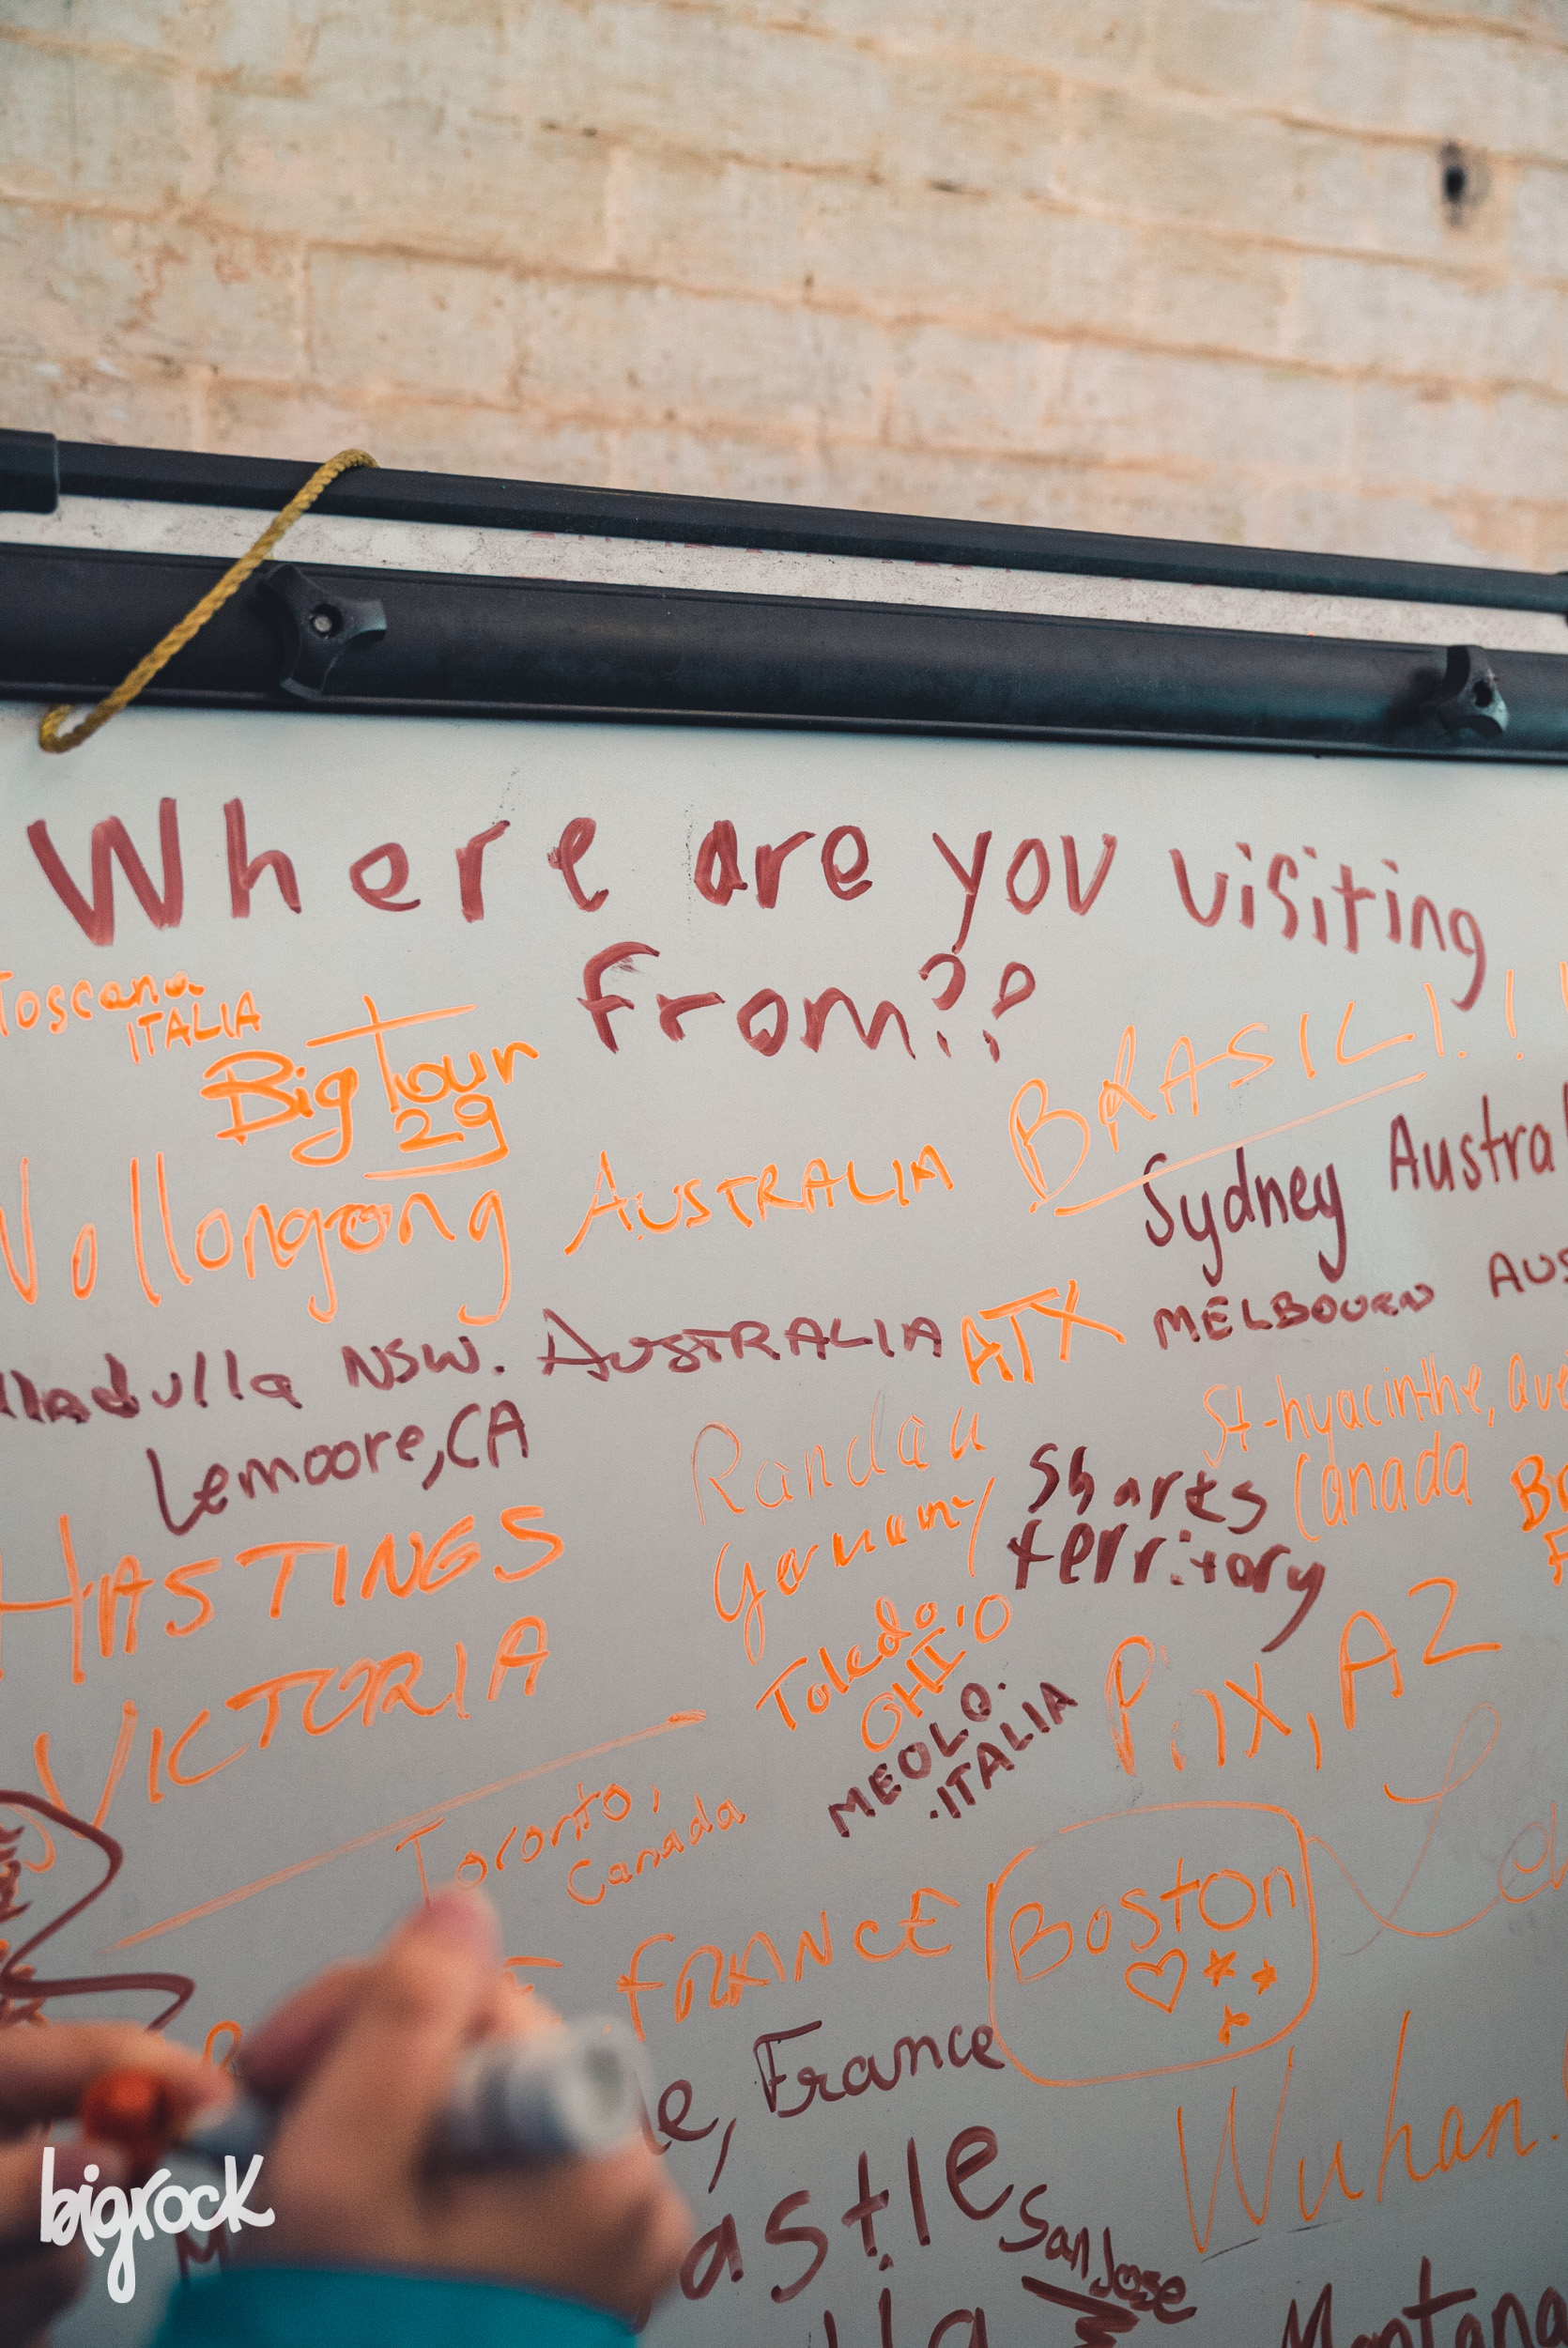 Where are you visiting
from??
Toscana
ITALIA
Big Tour
29
BRASIL!!!
Wollongong AUSTRALIA
Sydney Austral
lladulla NSW. AUSTRALIA
ATX
MELBOURN AUS
Lemoore, CA
Randau
Germany
St-hyacinthe, Qué
Canada
Sharks
territory
HASTINGS
VICTORIA
Toledo, O
OHIO
MEOLO.
.ITALIA
P
IX, AZ
Toronto,
Canada
FRANCE
Boston
le, France
Wuhan.
astle
San Jose
lla
Montana
bigrock